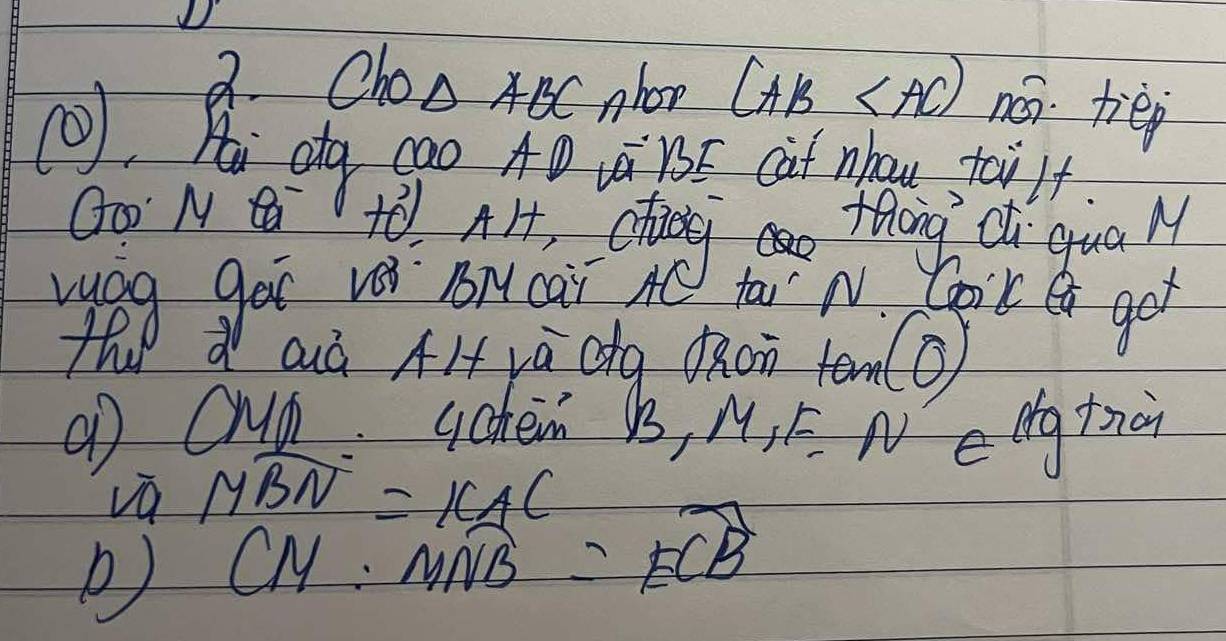 2. Cho Δ ABC nhọn (AB < AC) nội tiếp
(O). Hai đtg cao AD và BE cắt nhau tại H
Gọi M là tđ AH, đường thẳng đi qua M
vuông góc với BM cắt AC tại N. Gọi K là gđ
thứ 2 của AH và đtg tròn tâm (O)
a) CMR : 4 điểm B, M, E, N ∈ đtg tròn
và MBN = KAC
b) CM : MNB = ECB